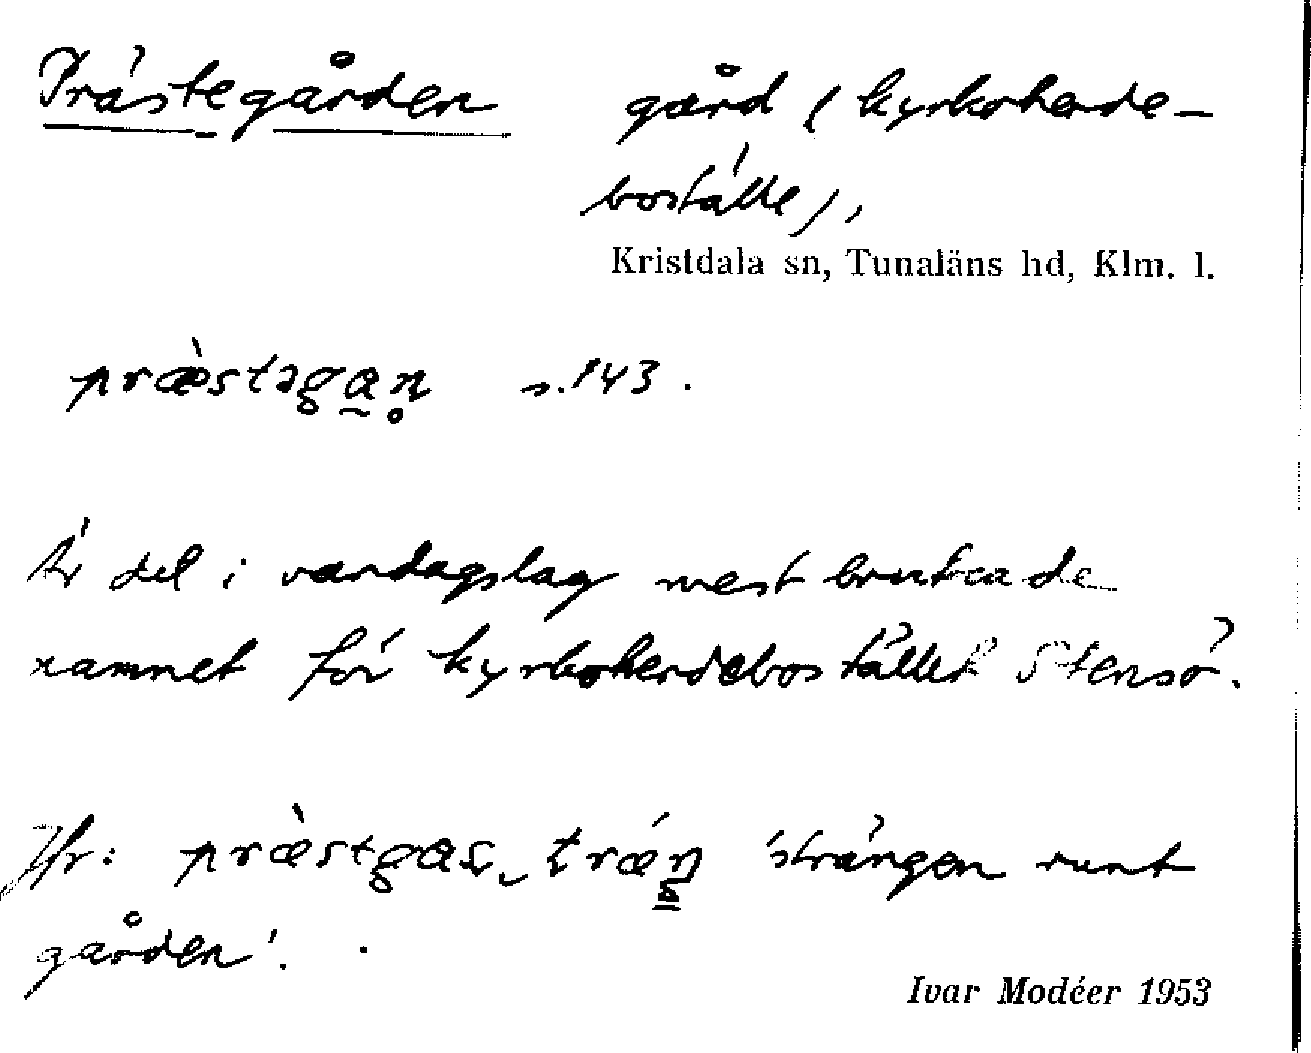 Prästegården gård (kyrkoherde-
boställe),
Kristdala sn, Tunaläns hd, Klm. l.
præ̀stəga̰n̥ s. 143.
Är det i vardagslag mest brukade
namnet för kyrkoherdebostället Stensö.
Jfr: 'strängen runt
gården'.
Ivar Modéer 1953